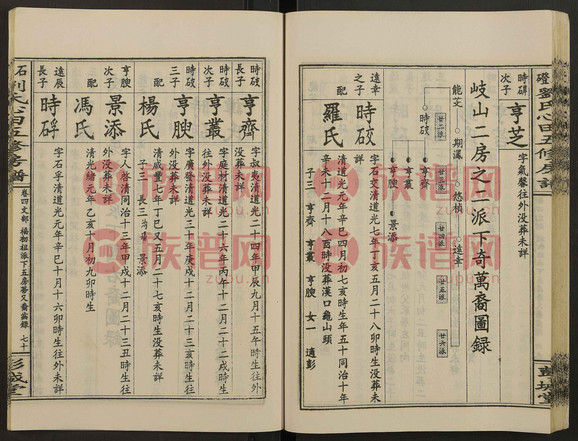 時碑次子
亨芝
字氣馨往外没葬未詳
岐山二房之二派下奇萬裔圖録
能芠
期漋
悠楨
遠幸
時䂭
亨齊
亨叢
亨腴
景添
廿二派
廿四派
廿五派
廿六派
遠幸之子
時䂭
字石交清道光七年丁亥五月二十八卯時生没葬未詳
配
羅氏
清道光元年辛巳四月初七亥時生没年五十同治十年
辛未十二月十八酉時没葬漢口龜山頭
子三 亨齊 亨叢 亨腴 女一 適彭
時䂭長子
亨齊
字叔夷清道光二十四年甲辰九月十五午時生往外
没葬未詳
時䂭次子
亨叢
字庭材清道光二十六年丙午十二月二十二戌時生
往外没葬未詳
時䂭三子
亨腴
字廣發清道光三十年庚戌十二月二十亥時生往
外没葬未詳
配
楊氏
清咸豐七年丁巳又五月二十七亥時生没葬未詳
子三 景添
亨腴長子
景添
字人啓清同治十三年甲戌十二月二十三丑時生往
外没葬未詳
配
馮氏
清光緒元年乙亥十月初九卯時生
遠辰長子
時碍
字石孚清道光元年辛巳十月十六卯時生往外未詳
劉氏心田五修房譜
卷四文郁 楊柳祖派下五房
七十
彭城堂
劉氏心田五修房譜
彭城堂
族谱网
zupu.cn
族谱网
zupu.cn